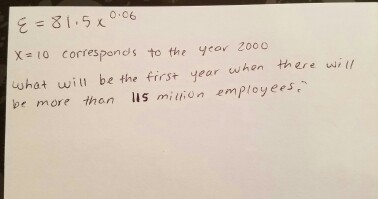 ε = 81.5x^0.06
X = 10 corresponds to the year 2000
what will be the first year when there will
be more than 115 million employees?